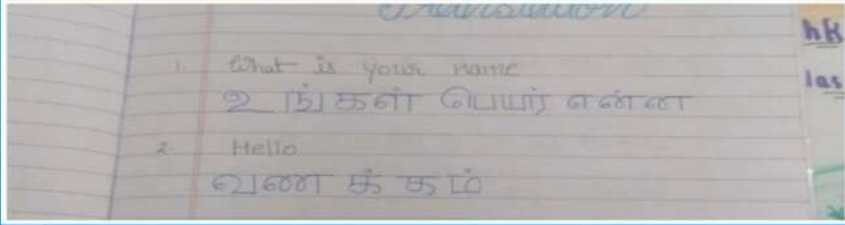 Translation
1. What is your name
உங்கள் பெயர் என்ன
2. Hello
வணக்கம்
hk
las